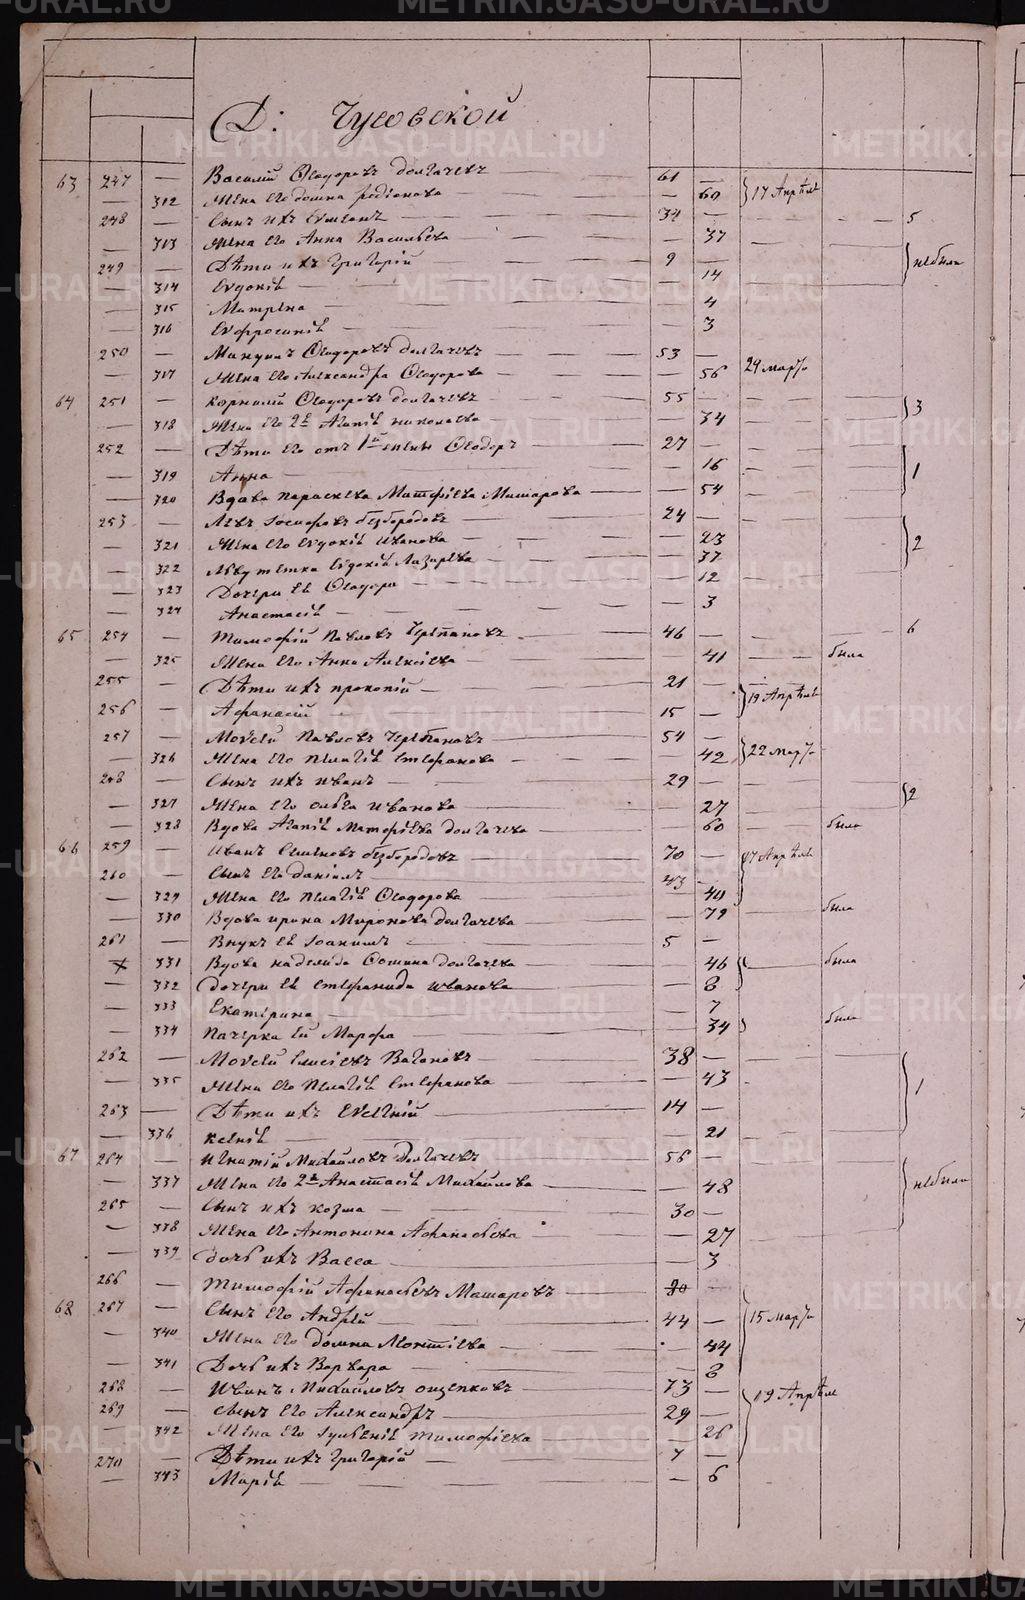 Д: Чусовской
63 247 — Василій Ѳеодоровъ Долгачевъ — 61 — 17 Апрѣля
— 312 Жена его Домна Родіонова — 60
248 — Сынъ ихъ Симеонъ — 34 — 5
— 313 Жена его Анна Васильева — 37
249 — Дѣти ихъ Григорій — 9 — не были
— 314 Евдокія — 14
— 315 Матрена — 4
— 316 Евфросинія — 3
250 — Ѳеодоровъ Долгачевъ — 53 —
— 317 Жена его Александра Ѳеодорова — 56 29 Марта
64 251 — Корнилій Ѳеодоровъ Долгачевъ — 55 — 3
— 318 Жена его 2я Агапія Николаева — 34
252 — Дѣти его отъ 1й жены Ѳеодоръ — 27 —
— 319 Анна — 16 1
— 320 Вдова Параскева Матфіева Машарова — 54
253 — Левъ Іосифовъ Безбородовъ — 24 —
— 321 Жена его Евдокія Иванова — 23 2
— 322 Льву тетка Евдокія Лазарева — 37
— 323 Дочери ея Ѳеодора — 12
— 324 Анастасія — 3
65 254 — Тимофій Павловъ Черепановъ — 46 — 6
— 325 Жена его Анна Алексіева — 41 — была
255 — Дѣти ихъ Прокопій — 21 — 19 Апрѣля
256 — Афанасій — 15 —
257 — Моисей Павловъ Черепановъ — 54 —
— 326 Жена его Пелагія Стефанова — 42 22 Марта
258 — Сынъ ихъ Иванъ — 29 —
— 327 Жена его Ольга Иванова — 27 2
— 328 Вдова Агапія Матфіева Долгачева — 60 — была
66 259 — Иванъ Семеновъ Безбородовъ — 70 — 17 Апрѣля
260 — Сынъ его Даніилъ — 43 —
— 329 Жена его Пелагія Ѳеодорова — 40
— 330 Вдова Ирина Миронова Долгачева — 79 — была
261 — Внукъ ея Іоаннъ — 5 —
— 331 Вдова Надежда Фомина Долгачева — 46 — была
— 332 Дочери ея Стефанида Иванова — 8
— 333 Екатерина — 7
— 334 Падчерка ей Марфа — 34 была
262 — Моисей Елисіевъ Вагановъ — 38 —
— 335 Жена его Пелагія Стефанова — 43 1
263 — Дѣти ихъ Евгеній — 14 —
— 336 Ксенія — 21
67 264 — Игнатій Михайловъ Долгачевъ — 56 —
— 337 Жена его 2я Анастасія Михайлова — 48 не были
265 — Сынъ ихъ Козма — 30 —
— 338 Жена его Антонина Афанасьева — 27
— 339 Дочь ихъ Васса — 3
266 — Тимофій Афанасьевъ Машаровъ — 80 —
68 267 — Сынъ его Андрей — 44 — 15 Марта
— 340 Жена его Домна Леонтіева — 44
— 341 Дочь ихъ Варвара — 8
268 — Иванъ Михайловъ Ощепковъ — 73 — 19 Апрѣля
269 — Сынъ его Александръ — 29 —
— 342 Жена его Тимофіева — 26
270 — Дѣти ихъ Григорій — 7 —
— 343 Марія — 6